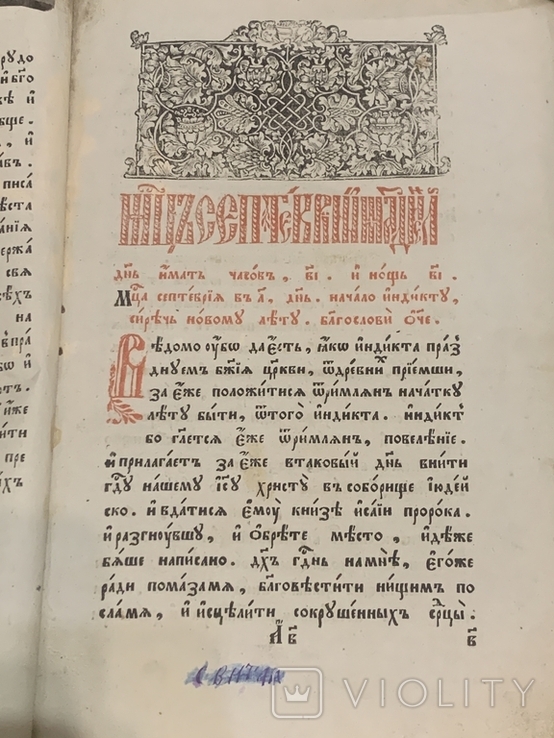 рудо
и бг҃о
вѣ и
бще .
, и
писа
ѣста
ержа
свѧ
на
ит .
ити
пре
днь҃ и҆мать часовъ , в҃і . и҆ нощь в҃і .
Мц҃а септеврїѧ въ а҃ , днь҃ . начало и҆ндикту ,
сирѣчь новому лѣту . благослови ѻ҆́ч҃е .
Вѣдомо ѹ҆́бѡ да є҆сть , ꙗ҆́кѡ и҆ндикта праз
днуемъ бж҃їѧ цр҃кви , ѿ древнихъ прїемши ,
за є҆́же положитисѧ ѿ римлѧнъ начатку
лѣту быти , ѿ того и҆ндикта . и҆ндиктъ
бо гл҃етсѧ є҆́же ѿ римлѧнъ , повелѣнїе .
и҆ прилагаетъ за є҆́же втаковый днь҃ внити
гд҃у нашему і҆с҃у христу въ соборище і҆юдей
ско . и҆ вдатисѧ є҆мѹ̀ кнізѣ и҆саїи пророка .
и҆ разгнѹвшу , и҆ ѻ҆брѣте мѣсто , и҆дѣже
бѧше написано . дх҃ъ гд҃нь на мнѣ , є҆гоже
ради помаза мѧ , бл҃говѣстити нищимъ по
сла мѧ , и҆ и҆сцѣлити сокрушенныхъ ср҃цы .
VIOLITY